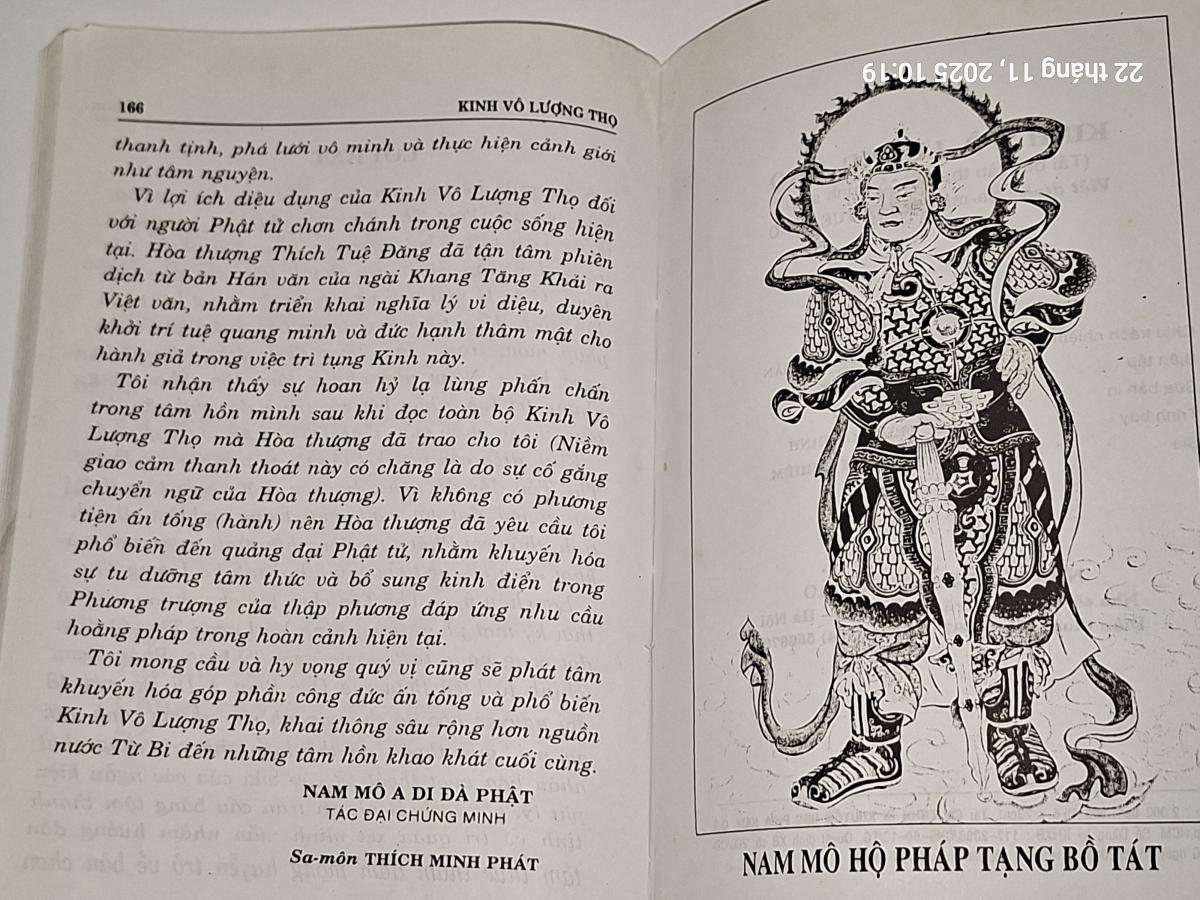 166
KINH VÔ LƯỢNG THỌ
thanh tịnh, phá lưới vô minh và thực hiện cảnh giới
như tâm nguyện.
Vì lợi ích diệu dụng của Kinh Vô Lượng Thọ đối
với người Phật tử chơn chánh trong cuộc sống hiện
tại. Hòa thượng Thích Tuệ Đăng đã tận tâm phiên
dịch từ bản Hán văn của ngài Khang Tăng Khải ra
Việt văn, nhằm triển khai nghĩa lý vi diệu, duyên
khởi trí tuệ quang minh và đức hạnh thâm mật cho
hành giả trong việc trì tụng Kinh này.
Tôi nhận thấy sự hoan hỷ lạ lùng phấn chấn
trong tâm hồn mình sau khi đọc toàn bộ Kinh Vô
Lượng Thọ mà Hòa thượng đã trao cho tôi (Niềm
giao cảm thanh thoát này có chăng là do sự cố gắng
chuyển ngữ của Hòa thượng). Vì không có phương
tiện ấn tống (hành) nên Hòa thượng đã yêu cầu tôi
phổ biến đến quảng đại Phật tử, nhằm khuyến hóa
sự tu dưỡng tâm thức và bổ sung kinh điển trong
Phương trượng của thập phương đáp ứng nhu cầu
hoằng pháp trong hoàn cảnh hiện tại.
Tôi mong cầu và hy vọng quý vị cũng sẽ phát tâm
khuyến hóa góp phần công đức ấn tống và phổ biến
Kinh Vô Lượng Thọ, khai thông sâu rộng hơn nguồn
nước Từ Bi đến những tâm hồn khao khát cuối cùng.
NAM MÔ A DI ĐÀ PHẬT
TÁC ĐẠI CHỨNG MINH
Sa-môn THÍCH MINH PHÁT
22 tháng 11, 2025 10:19
NAM MÔ HỘ PHÁP TẠNG BỒ TÁT